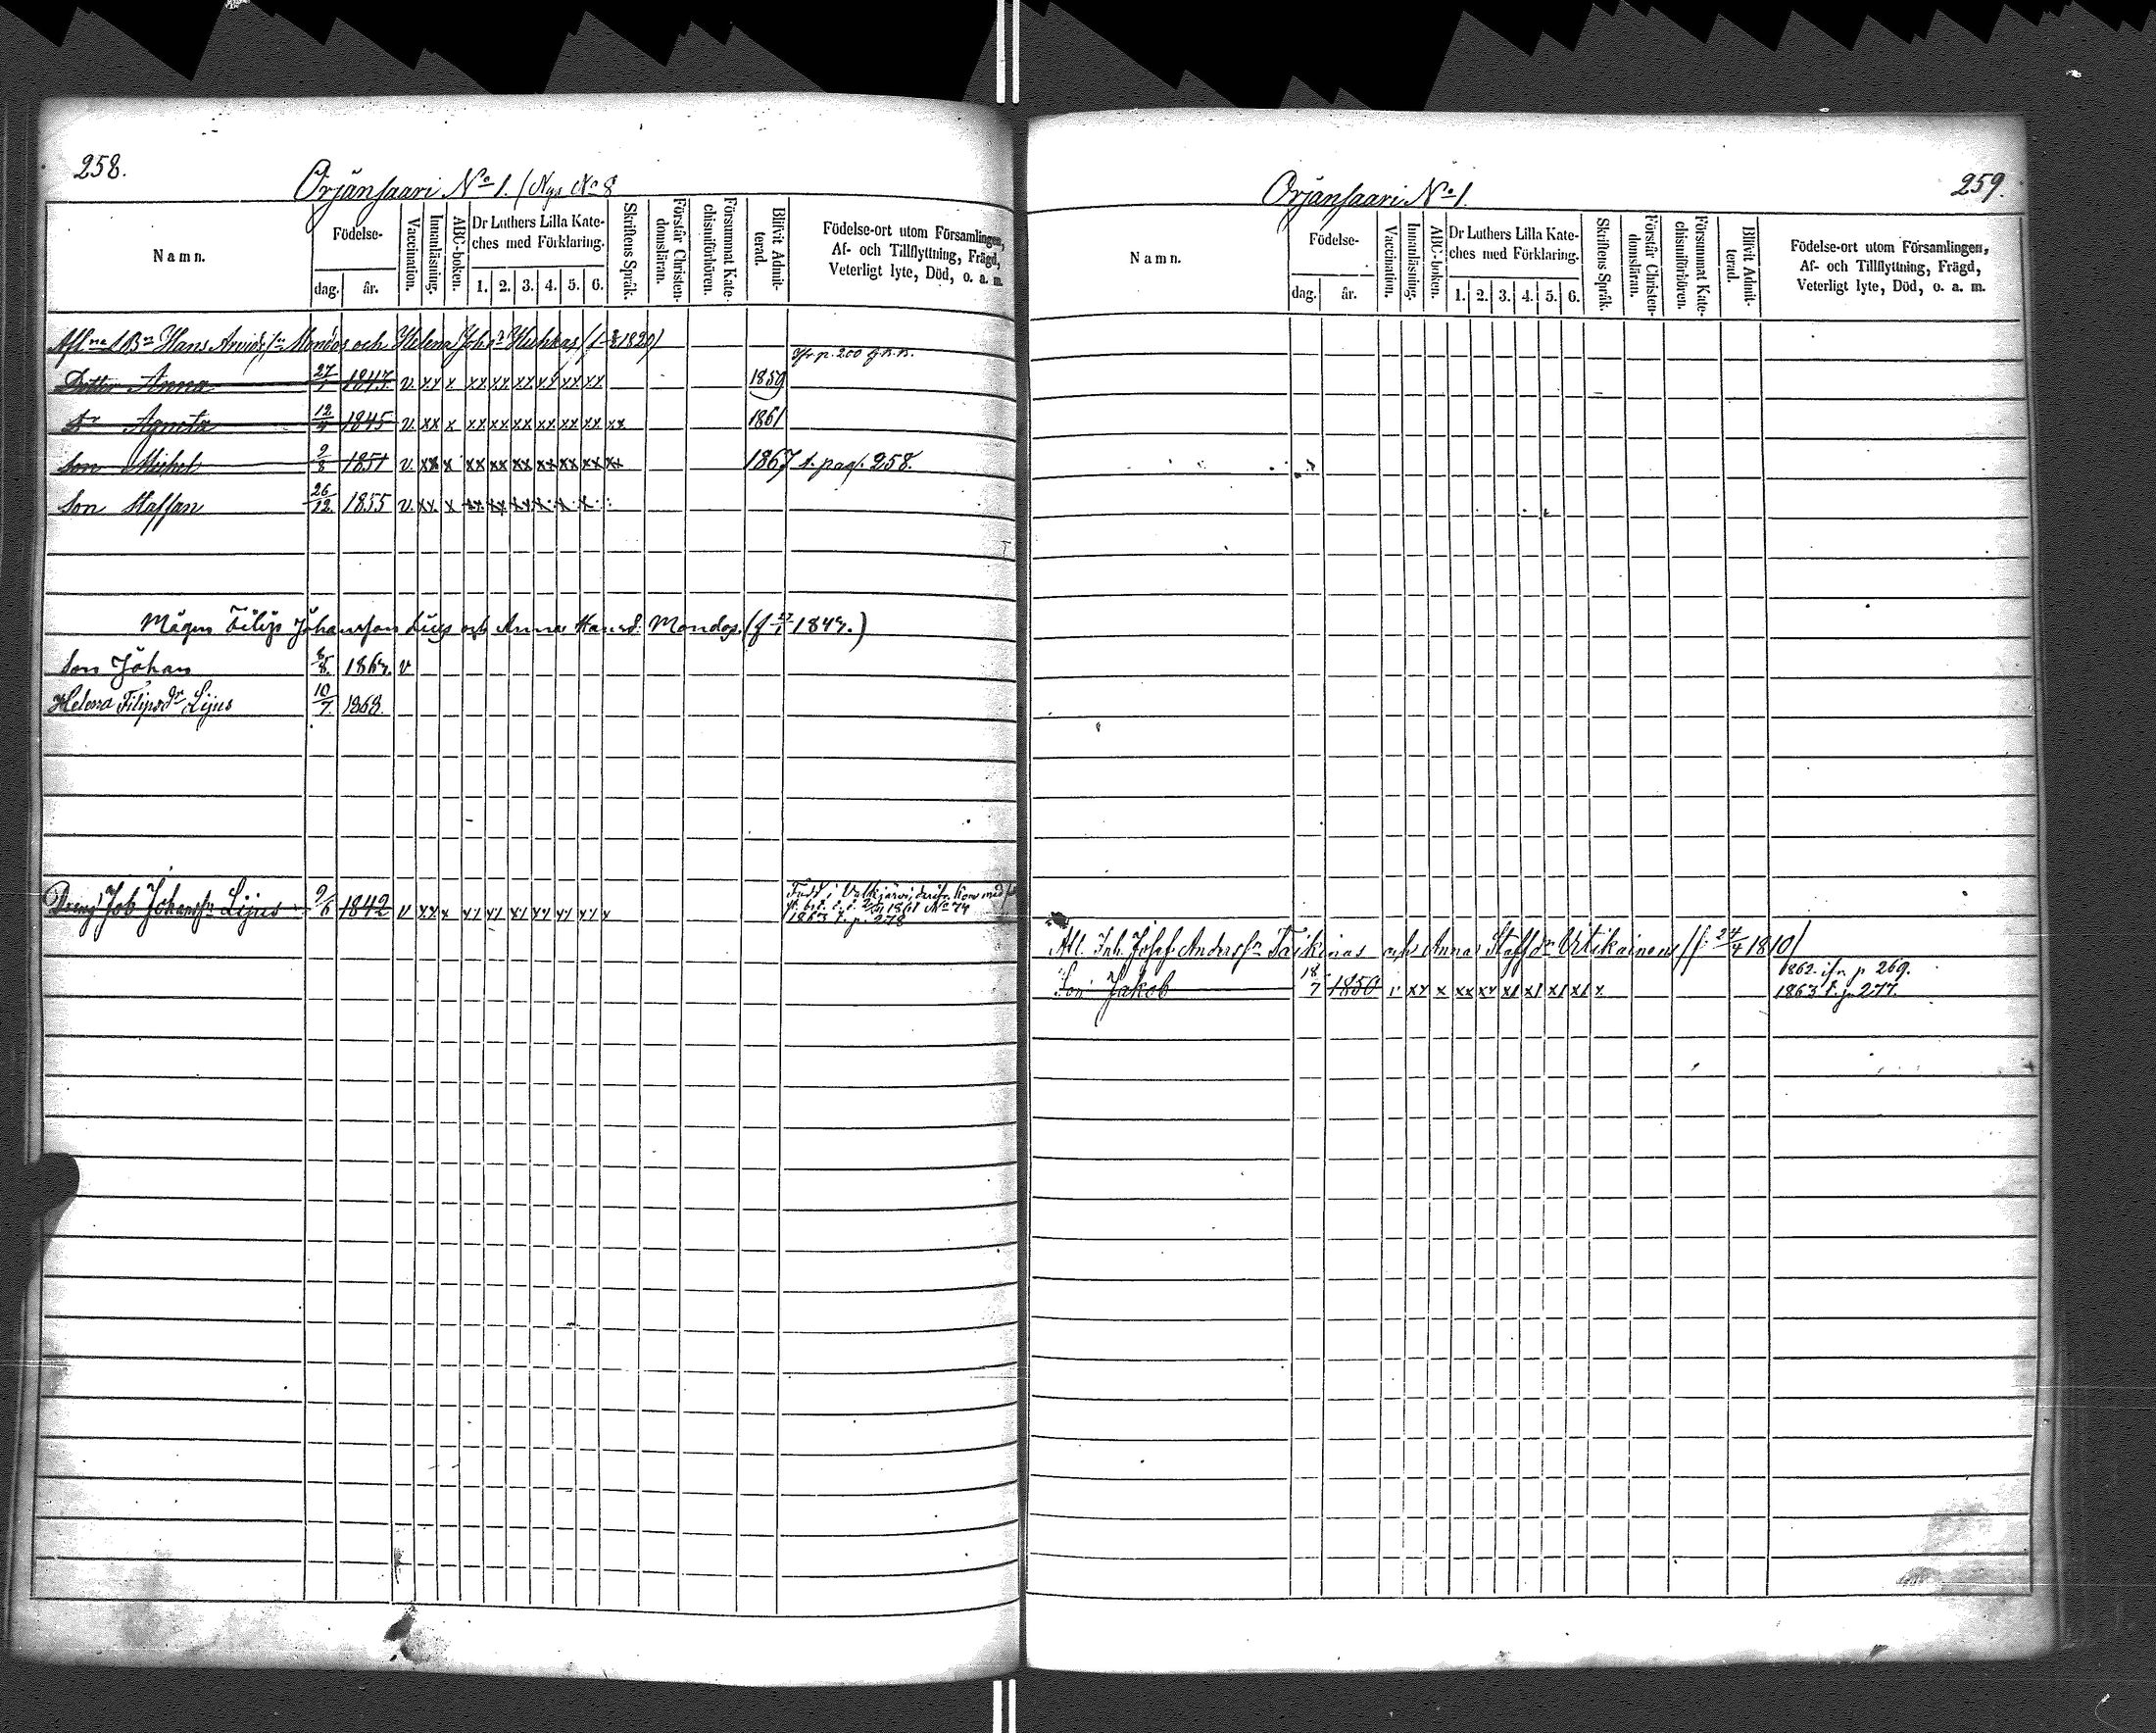 258.
Orjänsaari No 1. / Nya No 8
Namn.
Födelse-
dag.
år.
Vaccination.
Innanläsning.
ABC-boken.
Dr Luthers Lilla Kate-
ches med Förklaring.
1. 2. 3. 4. 5. 6.
Skriftens Språk.
Förstår Christen-
domsläran.
Försummat Kate-
chismiförhören.
Blifvit Admit-
terad.
Födelse-ort utom Församlingen,
Af- och Tillflyttning, Frägd,
Veterligt lyte, Död, o. a. m.
Hans och Helena Joh
p. 200
Dotter Anna 27/1 1847 v xx x xx xx xx xx xx xx 1859
Dr Agneta 12/4 1845 v xx x xx xx xx xx xx xx xx 1861
Son Michel 9/8 1851 v xx x xx xx xx xx xx xx xx 1867 t. pag. 258.
Son Staffan 26/12 1855 v xx x xx xx xx x x x
Mågen Filip Johansson Lijus och Anna Hansd. Mondos. (f 27/1 1847.)
Son Johan 8/8 1867. v
Helena Filipsdr Lijus 10/7 1868.
Född i Valkjärvi,
Dreng Job Johanssn Lijus 9/6 1842 v xx x x/ x/ x/ x/ x/ x/ x 1861 No 74
1863 t. p. 278
259.
Orjänsaari No 1.
Namn.
Födelse-
dag.
år.
Vaccination.
Innanläsning.
ABC-boken.
Dr Luthers Lilla Kate-
ches med Förklaring.
1. 2. 3. 4. 5. 6.
Skriftens Språk.
Förstår Christen-
domsläran.
Försummat Kate-
chismiförhören.
Blifvit Admit-
terad.
Födelse-ort utom Församlingen,
Af- och Tillflyttning, Frägd,
Veterligt lyte, Död, o. a. m.
Inh. Josef Anderssn Taikinas och Anna Staffdr Urtikainen / f. 24/4 1810 /
1862. ifr. p 269.
Son Jakob 18/7 1850 v xx x xx xx x/ x/ x/ x/ x 1863 t. p. 277.